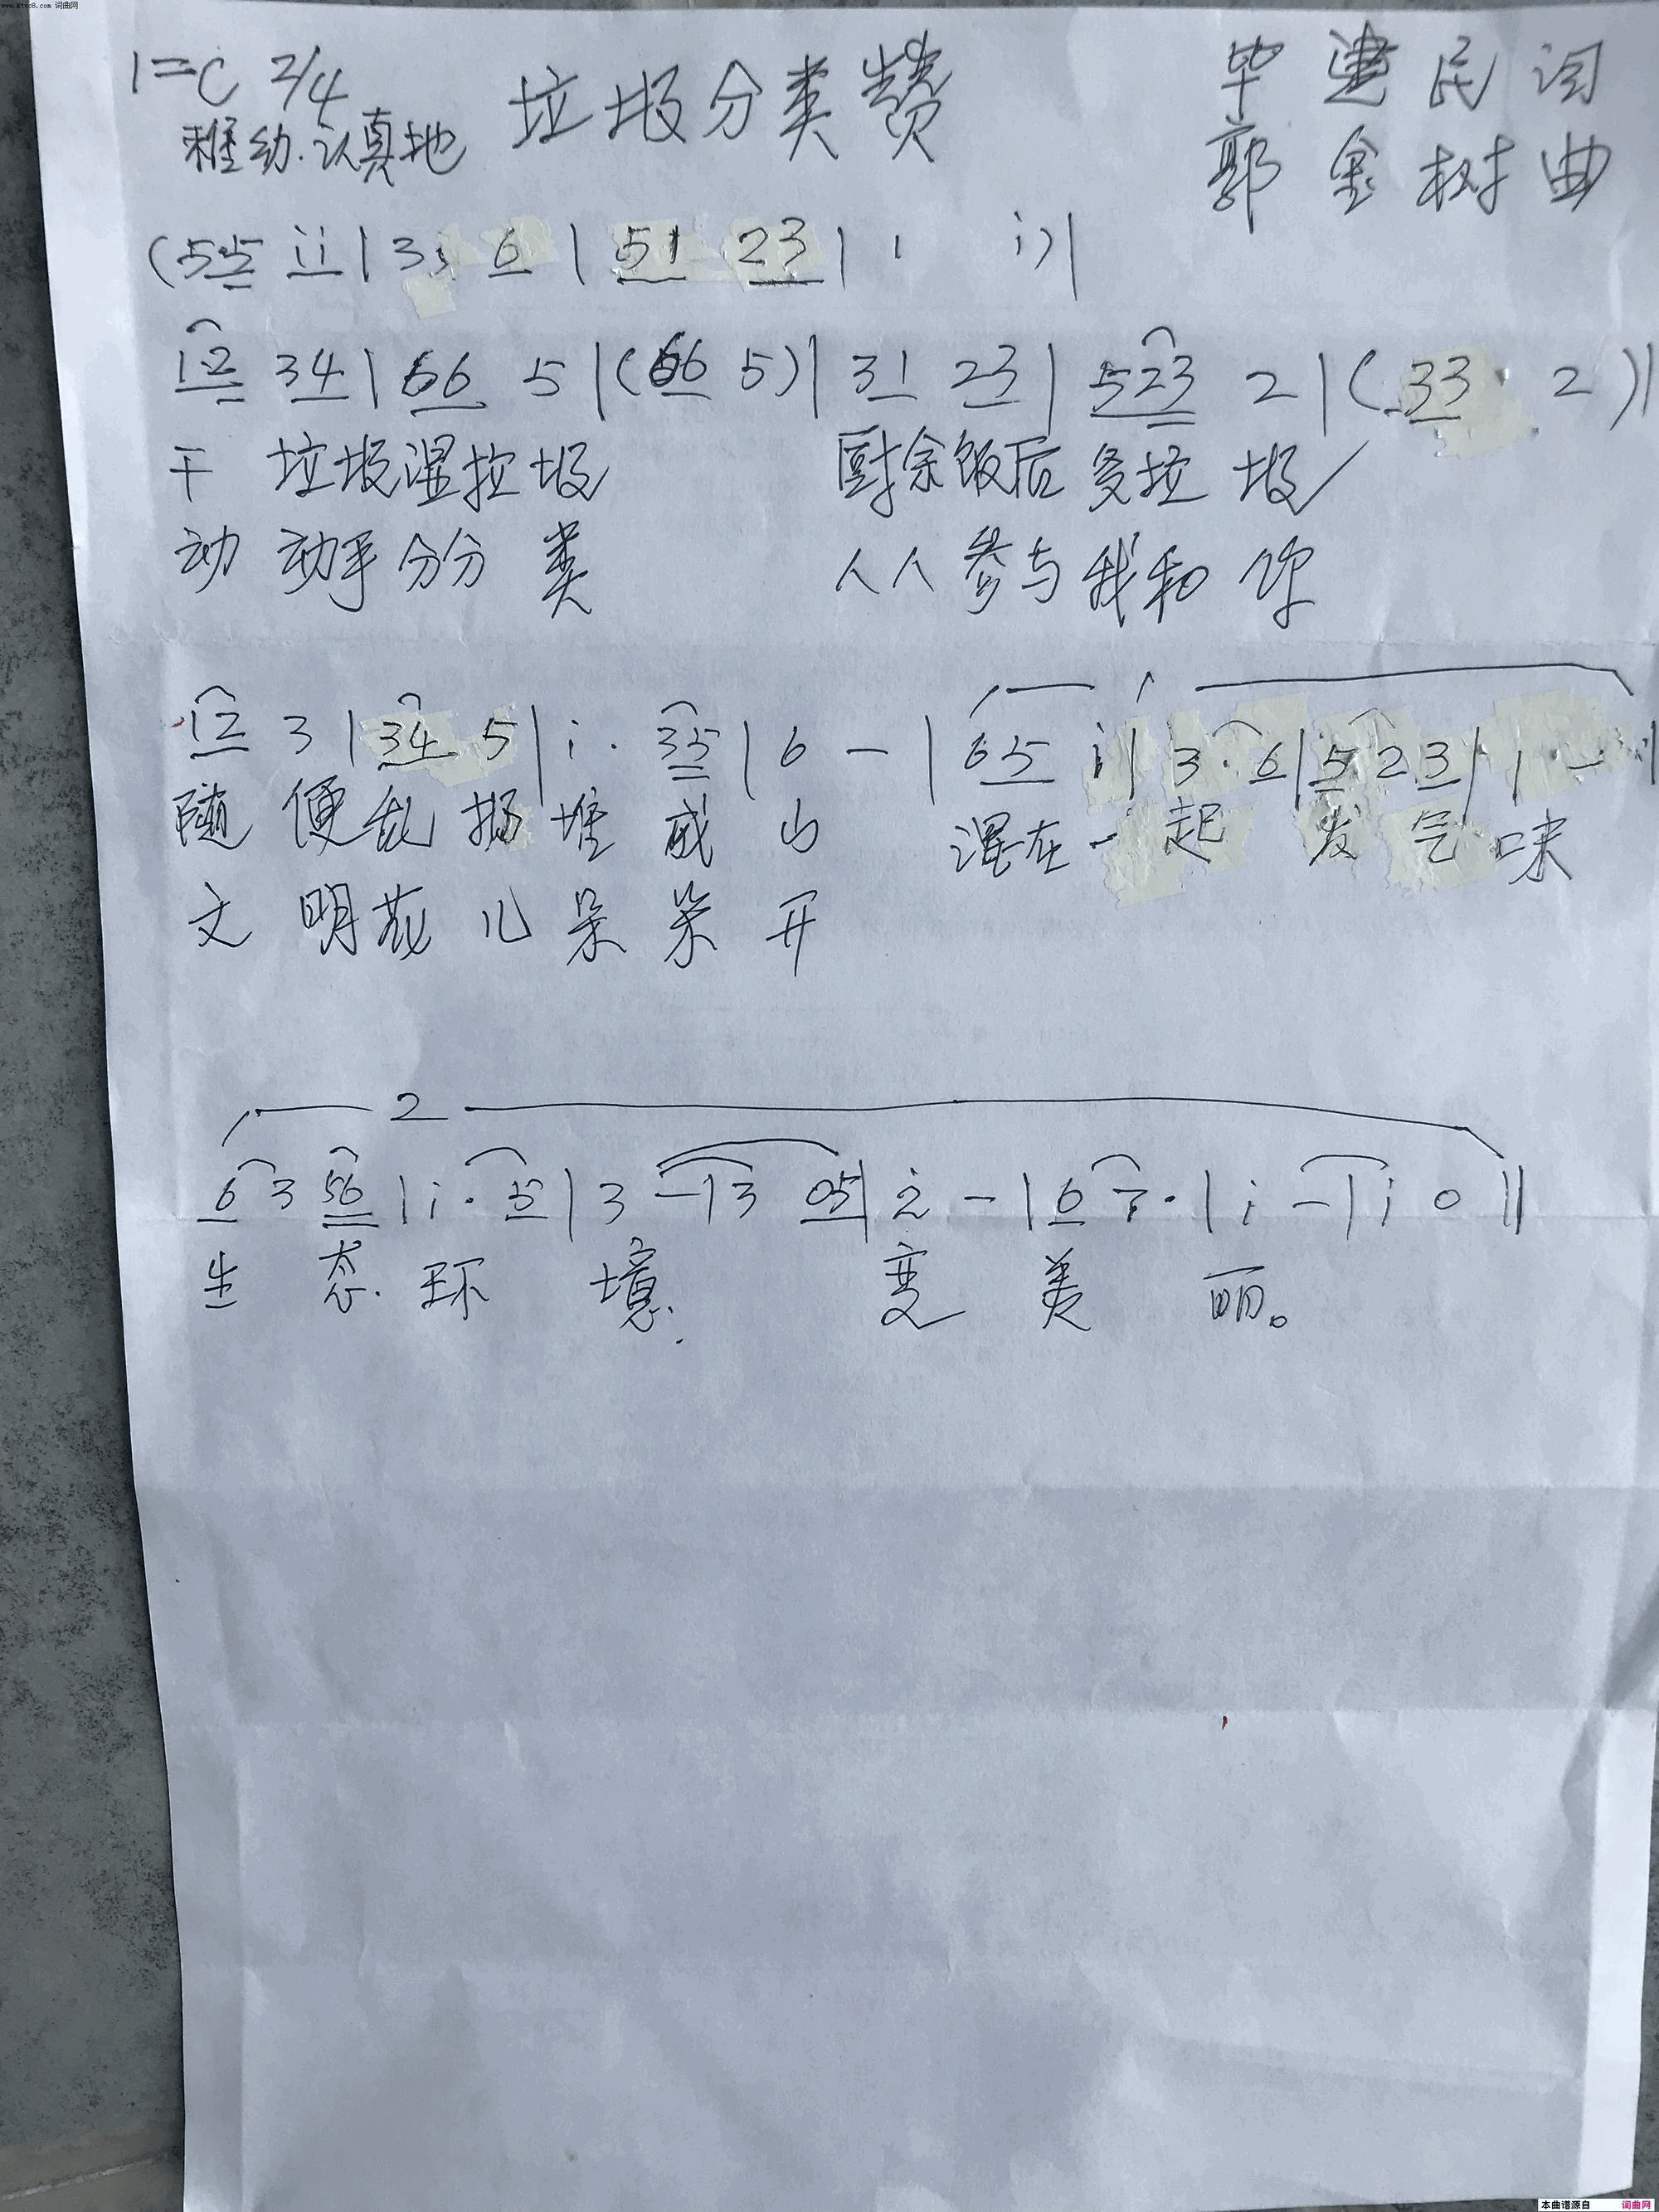 www.ktvc8.com 词曲网
1=C 2/4 垃圾分类赞 毕建民词
稚幼.认真地 郭金树曲
(55 i i | 3. 6 | 51 23 | 1 i) |
12 34 | 66 5 | (66 5) | 31 23 | 523 2 | (33 2) |
干垃圾湿垃圾 厨余饭后多垃圾
动动手分分类 人人参与我和你
1
12 3 | 34 5 | i · 35 | 6 — | 65 i | 3 · 6 | 523 | 1 — :|
随便乱扬堆成山 混在一起发气味
文明花儿朵朵开
2
6 3 56 | i · 5 | 3 — | 3 05 | 2 — | 6 7 · | i — | i 0 ||
生态环境 变美丽。
本曲谱源自 词曲网